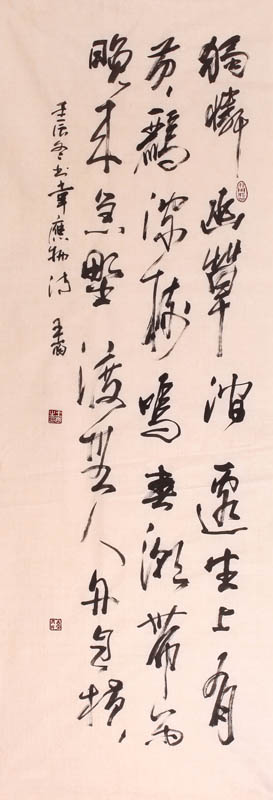 獨憐幽草澗邊生上有
黄鸝深樹鳴春潮帶雨
晚來急野渡無人舟自横
壬辰冬书韋應物诗 王